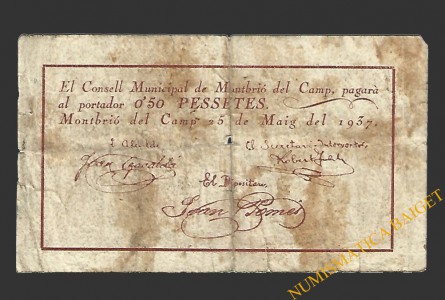 El Consell Municipal de Montbrió del Camp, pagarà
al portador 0'50 PESSETES.
Montbrió del Camp 25 de Maig del 1937.
L'Alcalde El Secretari-Interventor,
Joan
El Dipositari,
Joan Bomés
NUMISMATICA BAIGET